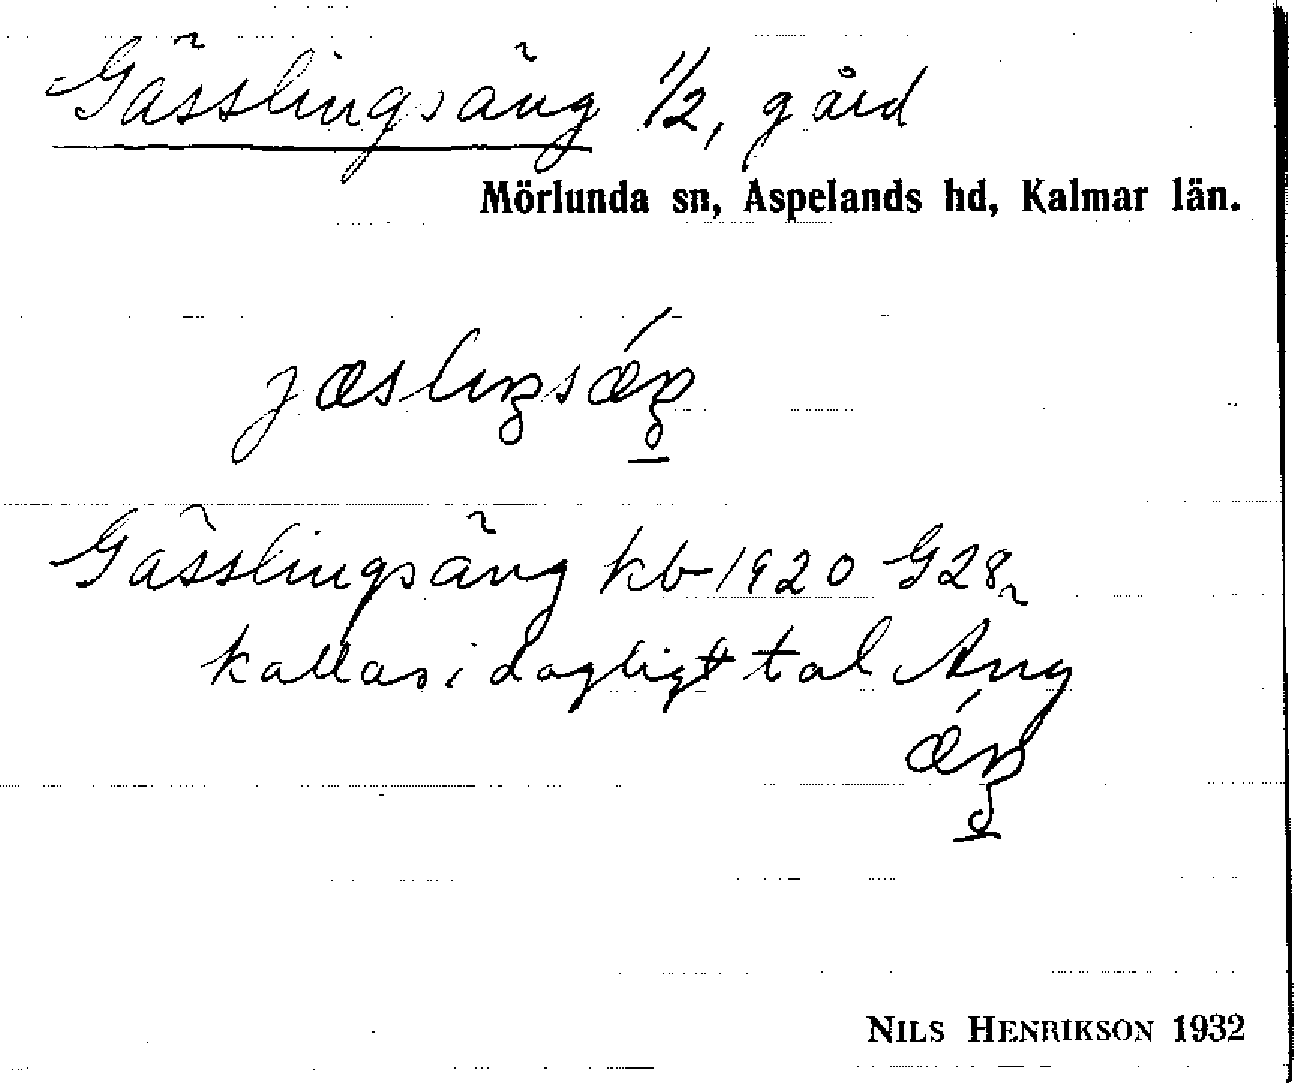 Gässlingsäng 1/2, gård
Mörlunda sn, Aspelands hd, Kalmar län.
jæsliŋsǽŋ
Gässlingsäng kb 1920 G28
kallas i dagligt tal Äng
ǽŋ
NILS HENRIKSON 1932